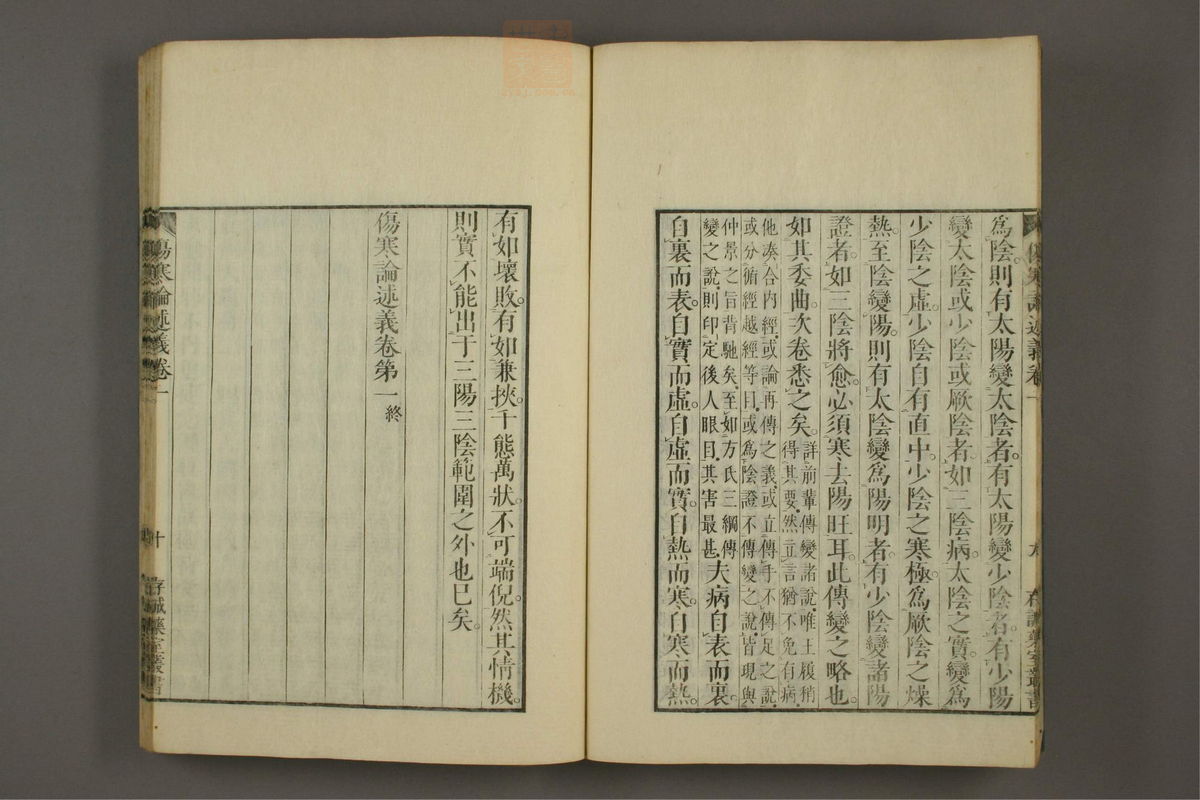 爲陰。則有太陽變太陰者。有太陽變少陰者。有少陽
變太陰或少陰或厥陰者。如三陰病。太陰之實。變爲
少陰之虛。少陰自有直中。少陰之寒極。爲厥陰之燥
熱。至陰變陽。則有太陰變爲陽明者。有少陰變諸陽
證者。如三陰將愈。必須寒去陽旺耳。此傳變之略也。
如其委曲。次卷悉之矣。詳前輩傳變諸說。唯王履稍
得其要。然立言猶不免有病。
他湊合內經。或論再傳之義。或立傳手不傳足之說。
或分循經越經等目。或爲陰證不傳變之說。皆現與
仲景之旨背馳矣。至如方氏三綱傳
變之說。則印定後人眼目。其害最甚。夫病自表而裏。
自裏而表。自實而虛。自虛而實。自熱而寒。自寒而熱。
傷寒論述義卷一
九
存誠藥室叢書
有如壞敗。有如兼挾。千態萬狀。不可端倪。然其情機。
則實不能出于三陽三陰範圍之外也已矣。
傷寒論述義卷第一終
傷寒論述義卷一
十
存誠藥室叢書